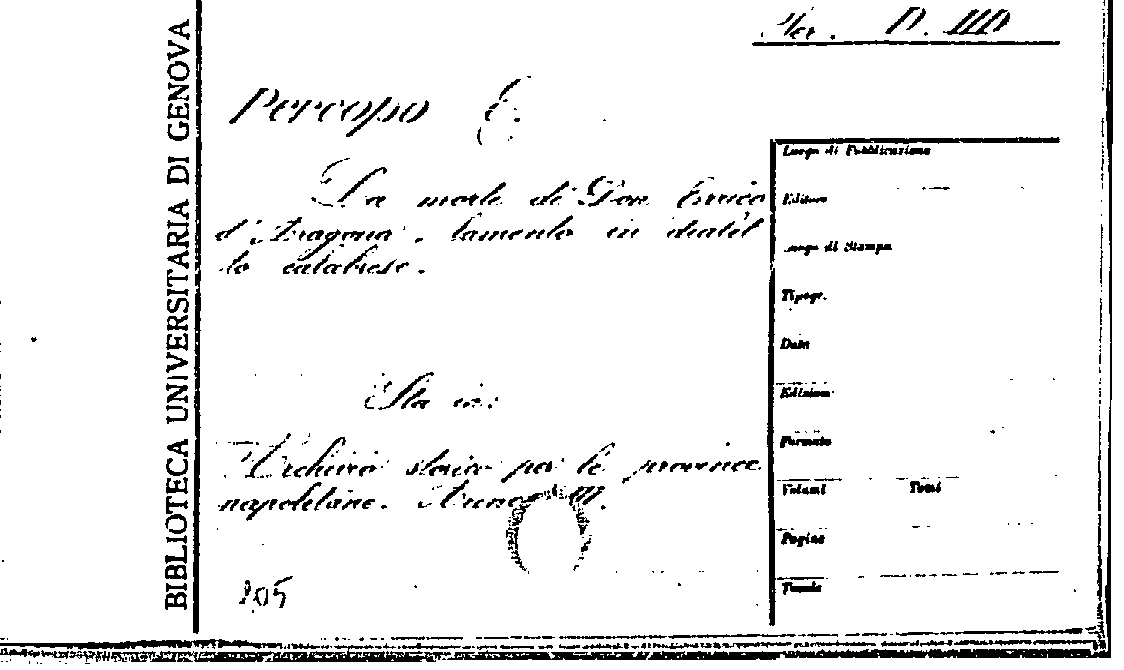 Per. D. IIII
Percopo E.
La morte di Don Enrico
d'Aragona. lamento in dialet
to calabrese.
Sta in:
Archivio storico per le province
napoletane. Anno III.
205
BIBLIOTECA UNIVERSITARIA DI GENOVA
Luogo di Pubblicazione
Editore
Luogo di Stampa
Tipogr.
Data
Edizione
Formato
Volumi Tomi
Pagine
Tavole